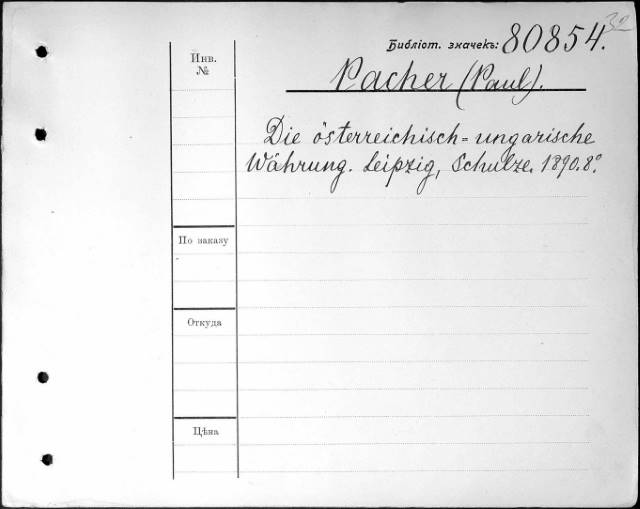 32
Библіот. значекъ: 80854.
Инв.
№
Pacher (Paul).
Die österreichisch=ungarische
Währung. Leipzig, Schulze. 1890. 8°.
По заказу
Откуда
Цѣна